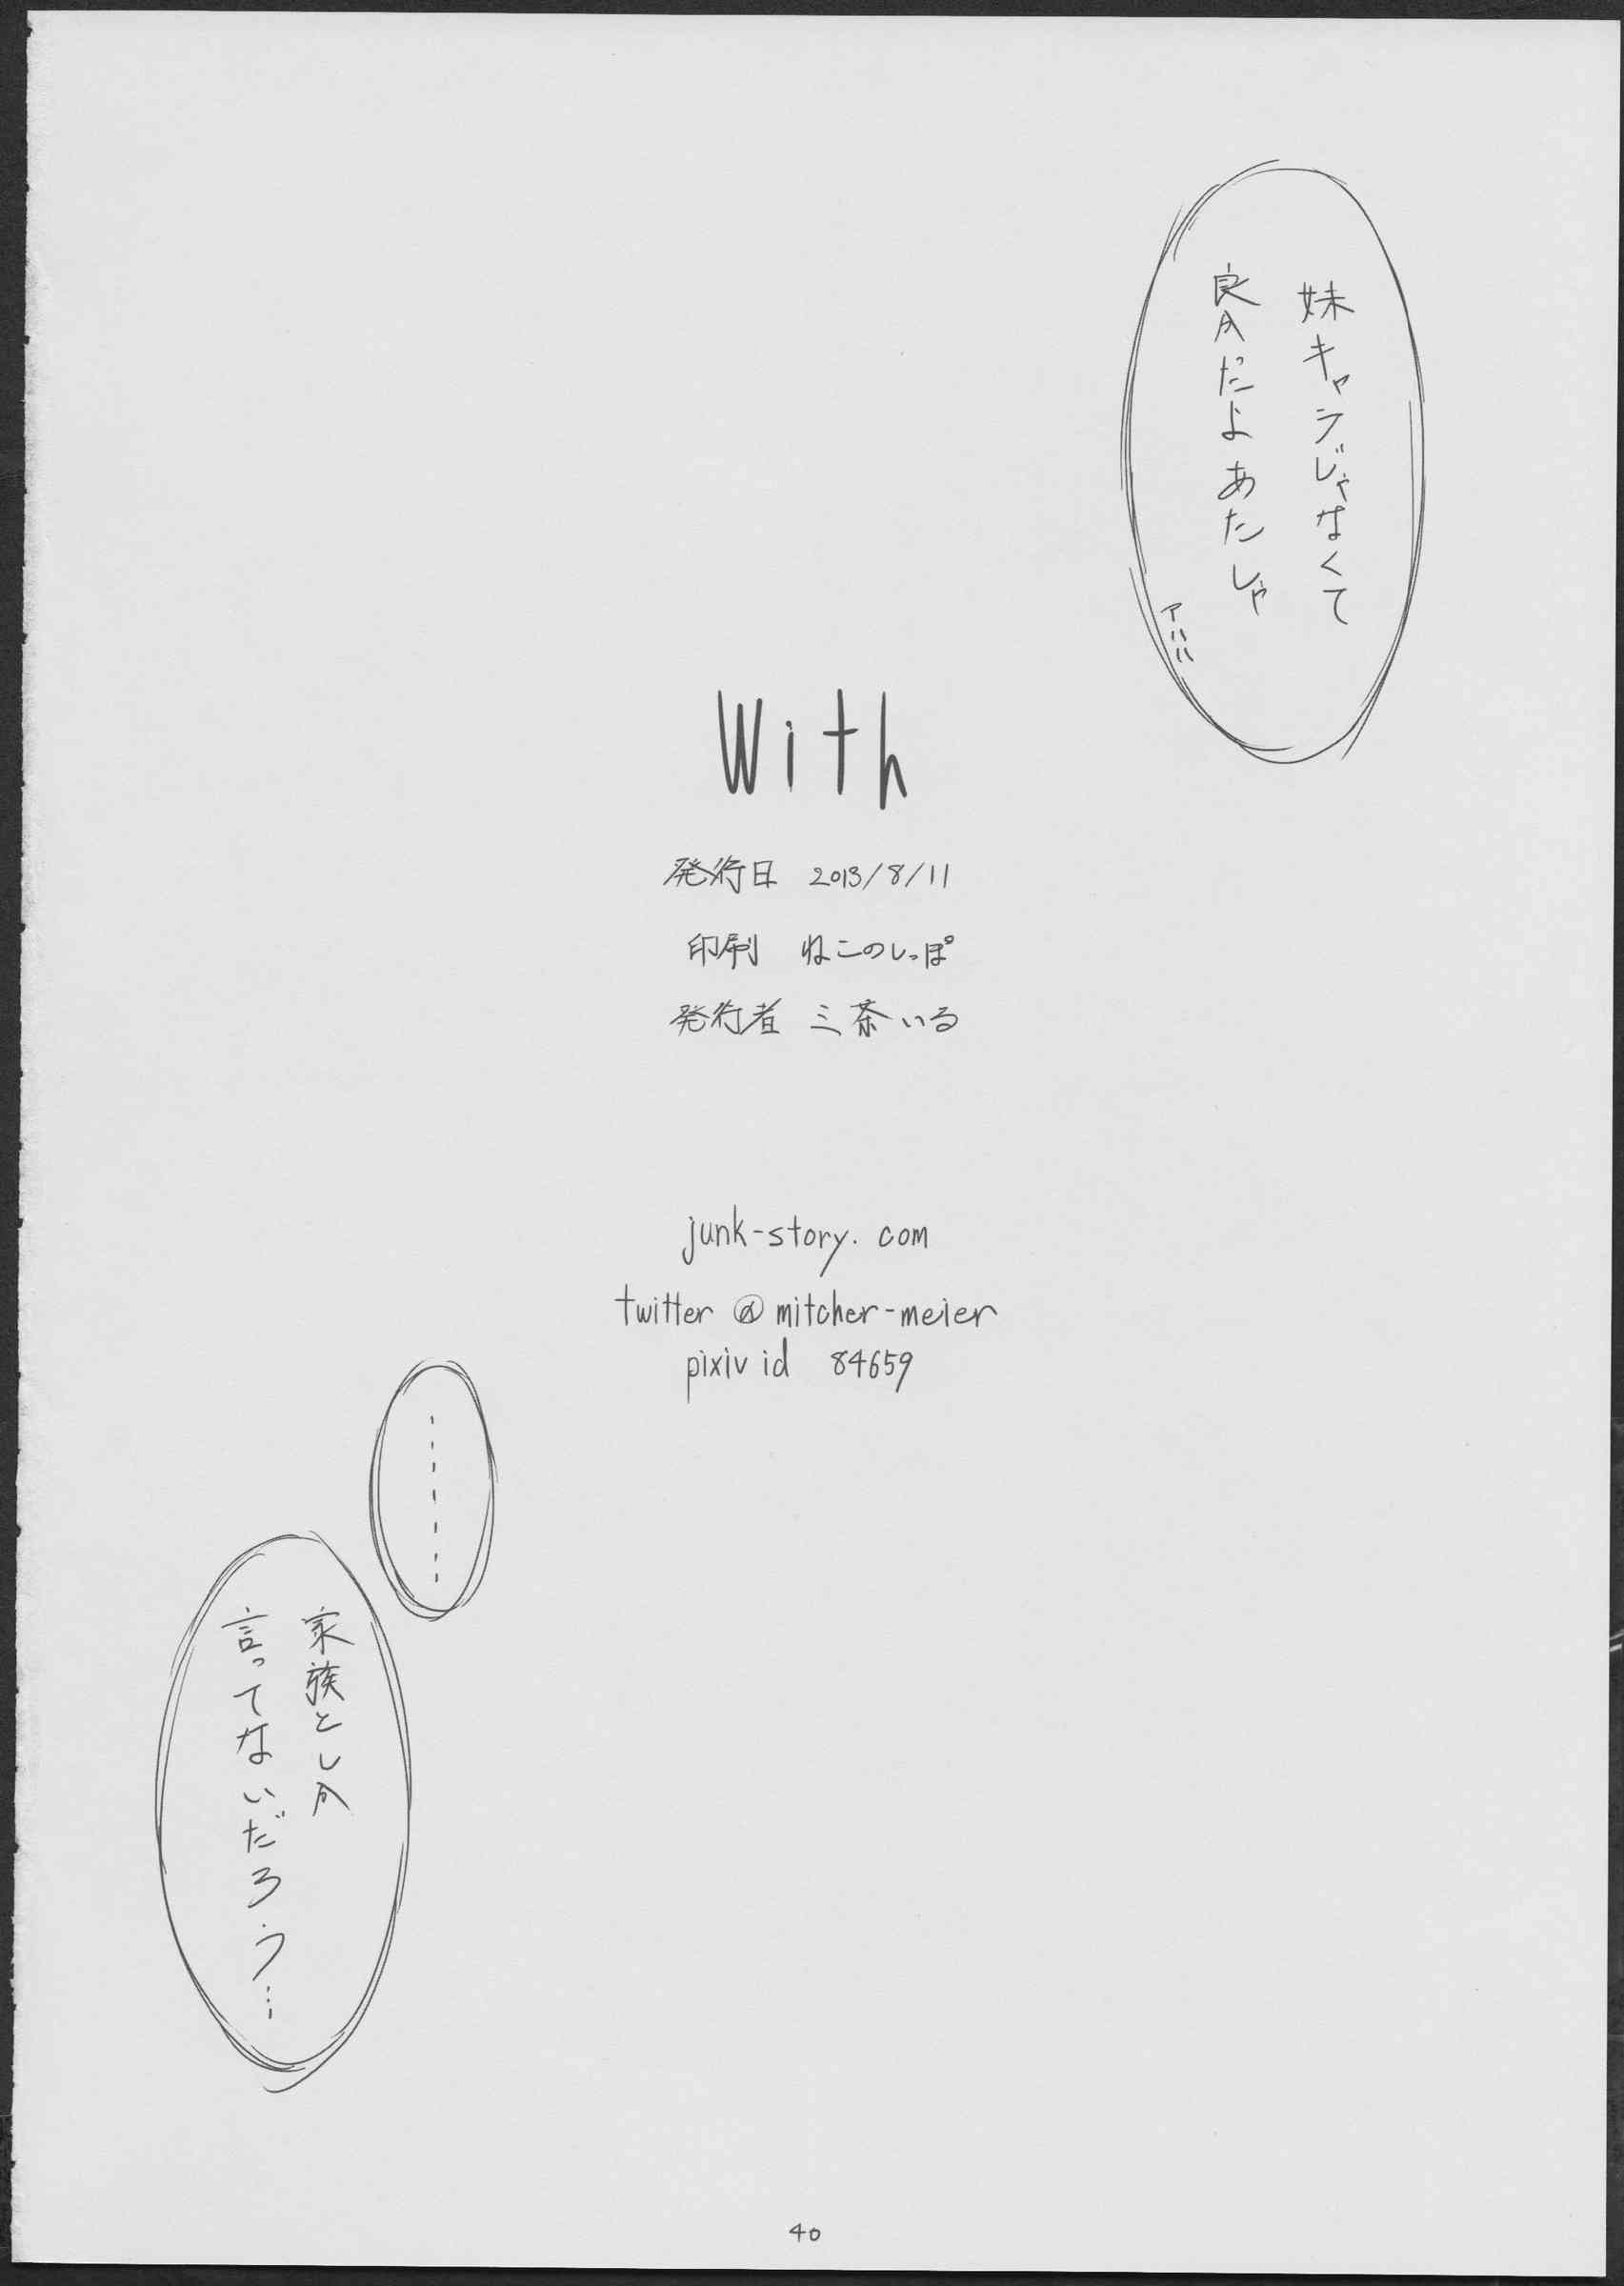 妹キャラじゃなくて
良かったよあたしゃ
アハハ
With
発行日 2013/8/11
印刷 ねこのしっぽ
発行者 三茶いる
junk-story.com
twitter @mitcher-meier
pixiv id 84659
………
家族としか
言ってないだろう…
40